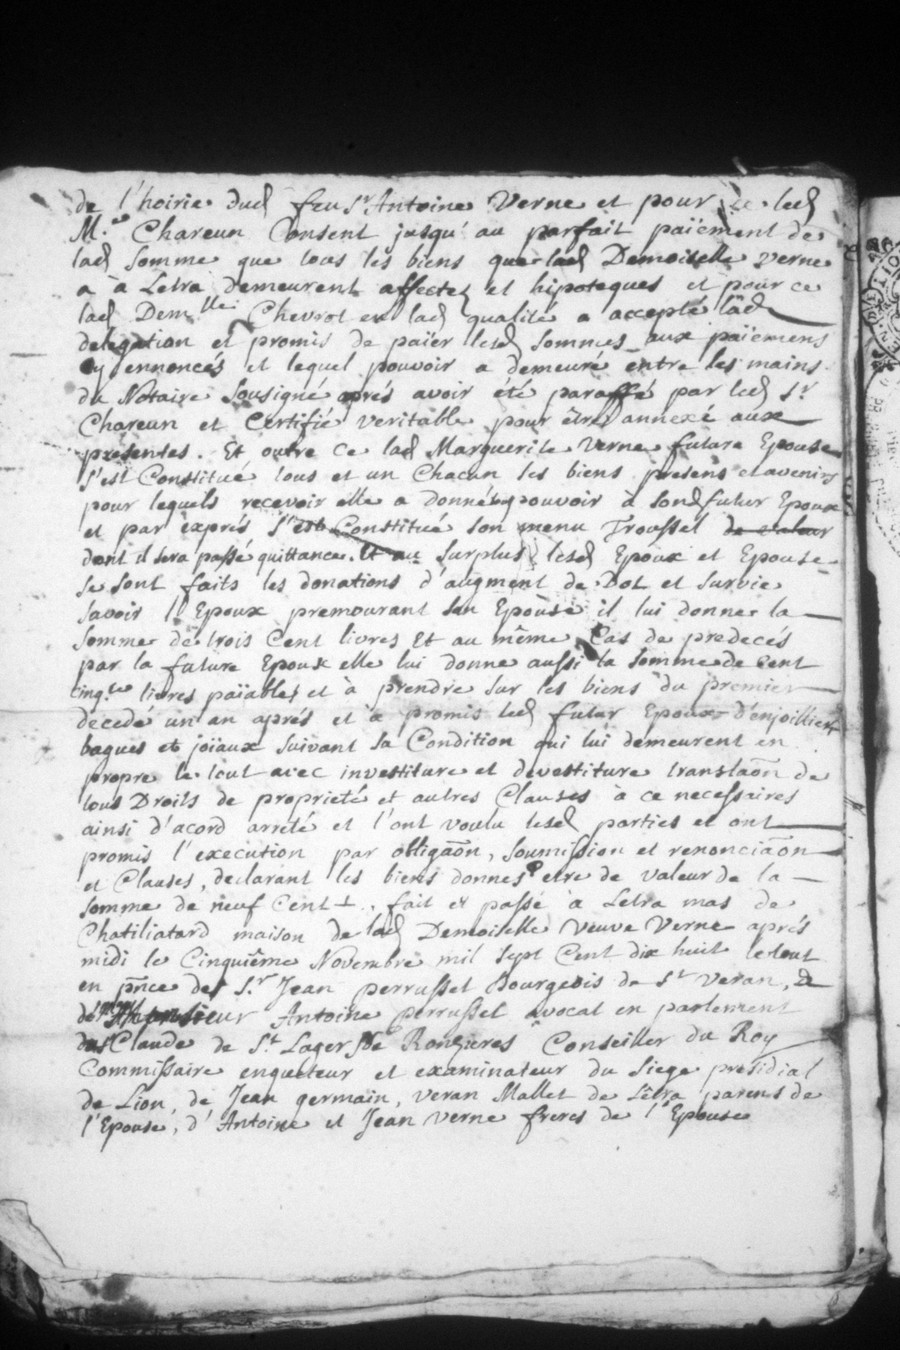 de l'hoirie dud feu sr Antoine Verne et pour ce led
M.e Chareun Consent jusqu'au parfait païement de
lad somme que tous les biens que lad Demoiselle Verne
a à Letra demeurent affectez et hipoteques et pour ce
lad Demlle Chevrot en lad qualité a accepté lad
delegation et promis de païer lesd sommes aux païemens
cy ennoncés et lequel pouvoir a demeuré entre les mains
du Notaire sousigné aprés avoir été paraffé par led sr
Chareun et Certifié veritable pour être annexé aux
presentes. Et outre ce lad Marguerite Verne future Epouse
s'est Constitué tous et un Chacun les biens presens et avenirs
pour lequels recevoir elle a donné pouvoir à sond futur Epoux
et par exprés s'est Constitué son menu Troussel de valeur
dont il sera passé quittance. Et au surplus lesd Epoux et Epouse
se sont faits les donations d'augment de Dot et survie
savoir l'Epoux premourant son Epouse il lui donne la
somme de trois Cent livres Et au même Cas de predecés
par la future Epoux elle lui donne aussi la somme de Cent
cinq.te livres païables et à prendre sur les biens du premier
decedé un an aprés et a promis led futur Epoux d'enjoillier
bagues et joïaux suivant sa Condition qui lui demeurent en
propre le tout avec investiture et devestiture translaõn de
tous Droits de proprieté et autres Clauses à ce necessaires
ainsi d'acord arrété et l'ont voulu lesd parties et ont
promis l'execution par obligaõn, soumission et renonciaõn
et Clauses, declarant les biens donnes etre de valeur de la
somme de neuf Cent ₶. fait et passé à Letra mas de
Chatiliatard maison de lad Demoiselle veuve Verne aprés
midi le Cinquiême Novembre mil sept Cent dix huit le tout
en pñce de S.r Jean perrussel Bourgeois de St Veran, de
Antoine perrussel avocat en parlement
Claude de St Lager de Ronzieres Conseiller du Roy
Commissaire enqueteur et examinateur du siege presidial
de Lion, de Jean germain, Veran Mallet de Lêtra parens de
l'Epouse, d'Antoine et Jean Verne freres de l'Epouse